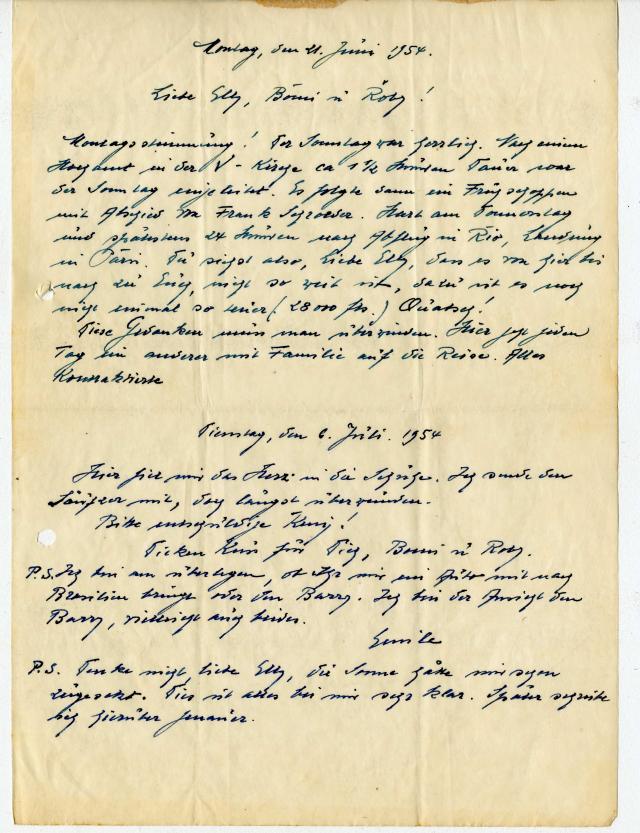 Montag, den 21. Juni 1954.
Liebe Elly, Bomi u Roby!
Montagsstimmung! Der Sonntag war herrlich. Nach einem
Hochamt in der V-Kirche ca 1½ Stunden Dauer war
der Sonntag eingeleitet. Es folgte dann ein Frühschoppen
mit Abschied von Frank Schroeder. Start am Donnerstag
und spätestens 24 Stunden nach Abflug in Rio, Landung
in Paris. Du siehst also, Liebe Elly, dass es von hier bis
nach zu Euch, nicht so weit ist, dazu ist es noch
nicht einmal so teuer (28000 frs.) Quatsch!
Diese Gedanken muss man überwinden. Hier geht jeden
Tag ein anderer mit Familie auf die Reise. Alles
Kontraktierte
Dienstag, den 6. Juli. 1954
Hier fiel mir das Herz in die Schuhe. Ich sende den
Seufzer mit, doch längst überwunden.
Bitte entschuldige
Dicken Kuss für Dich, Bomi u Roby.
P.S. Ich bin am überlegen, ob Ihr mir ein Auto mit nach
Brasilien bringt oder den Barry. Ich bin der Ansicht den
Barry, vielleicht auch beides.
Emile
P.S. Denke nicht, liebe Elly, die Sonne hätte mir schon
zugesetzt. Dies ist alles bei mir sehr klar. Später schreibe
ich hierüber genauer.